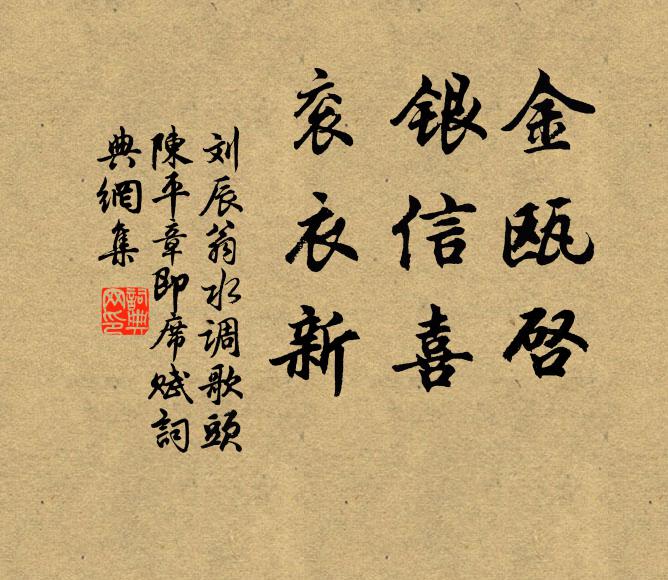 金瓯启
银信喜
衮衣新
刘辰翁水调歌頭
陳平章即席赋詞
典網集
詞典
网印